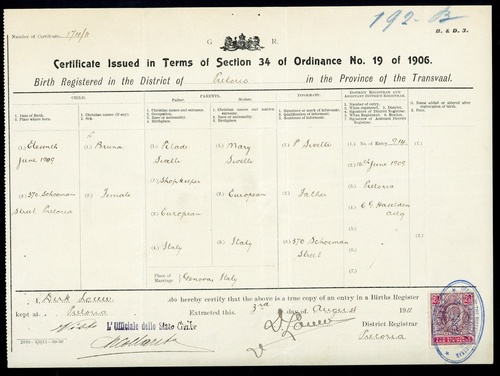 192-B
B. & D. 3.
Number of Certificate 
G R.
Certificate Issued in Terms of Section 34 of Ordinance No. 19 of 1906.
Birth Registered in the District of Pretoria in the Province of the Transvaal.
CHILD.
1. Date of Birth.
2. Place where born.
1. Christian names (if any).
2. Sex.
PARENTS.
Father.
1. Christian names and surname.
2. Occupation.
3. Race or nationality.
4. Birthplace
Mother.
1. Christian names and maiden surname.
3. Race or nationality.
4. Birthplace
INFORMANT.
1. Signature or mark of informant.
2. Qualification of informant.
3. Residence of informant.
DISTRICT REGISTRAR AND ASSISTANT DISTRICT REGISTRAR.
1. Number of entry.
2. When registered. 3. District.
4. Signature of District Registrar.
5. When Registered. 6. Station.
7. Signature of Assistant District Registrar.
1. Name added or altered after registration of birth.
2. Date.
(1) Eleventh June 1909
(2) 370 Schoeman Street Pretoria
(1) Bruna
(2) Female
(1) Pilade Sivelli
(2) Shopkeeper
(3) European
(4) Italy
(1) Mary Sivelli
(3) European
(4) Italy
Place of Marriage Genova, Italy
(1) P Sivelli
(2) Father
(3) 370 Schoeman Street
(1.) No. of Entry 914
(2.) 16th June 1909
(3.) Pretoria
(4.) C G Haselden actg
(5.)
(6.)
(7.)
(1.)
(2.)
I, Dirk Louw do hereby certify that the above is a true copy of an entry in a Births Register
kept at Pretoria Extracted this 3rd day of August 1911
D. Louw District Registrar
Visto L'Ufficiale dello Stato Civile Pretoria